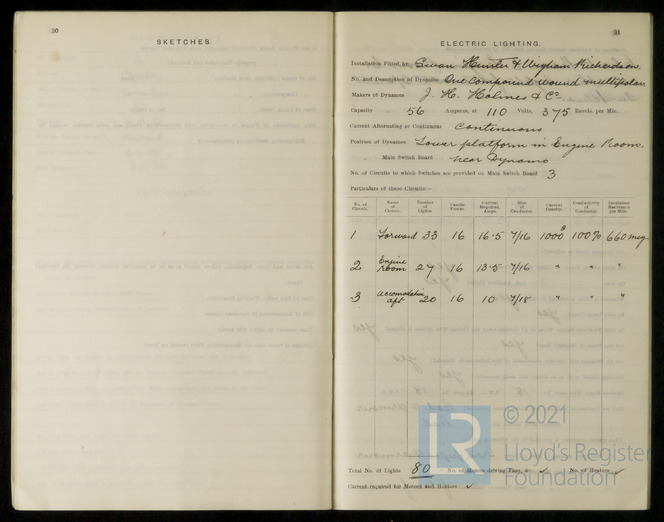 30
SKETCHES.
31
ELECTRIC LIGHTING.
Installation Fitted by Swan Hunter & Wigham Richardson
No. and Description of Dynamos One Compound wound multipolar
Makers of Dynamos J. H. Holmes & Co
Capacity 56 Amperes, at 110 Volts, 375 Revols. per Min.
Current Alternating or Continuous Continuous
Position of Dynamos Lower platform in Engine Room.
" Main Switch Board near Dynamo
No. of Circuits to which Switches are provided on Main Switch Board 3
Particulars of these Circuits:—
No. of Circuit. Name of Circuit. Number of Lights. Candle Power. Current Required, Amps. Size of Conductor. Current Density. Conductivity of Conductor. Insulation Resistance per Mile.
1 Forward 33 16 16.5 7/16 1000 100% 660 meg.
2 Engine room 27 16 13.5 7/16 " " "
3 Accomodation aft. 20 16 10 7/18 " " "
Total No. of Lights 80 No. of Motors driving Fans, &c ✓ No. of Heaters ✓
Current required for Motors and Heaters ✓
LR © 2021
Lloyd's Register
Foundation